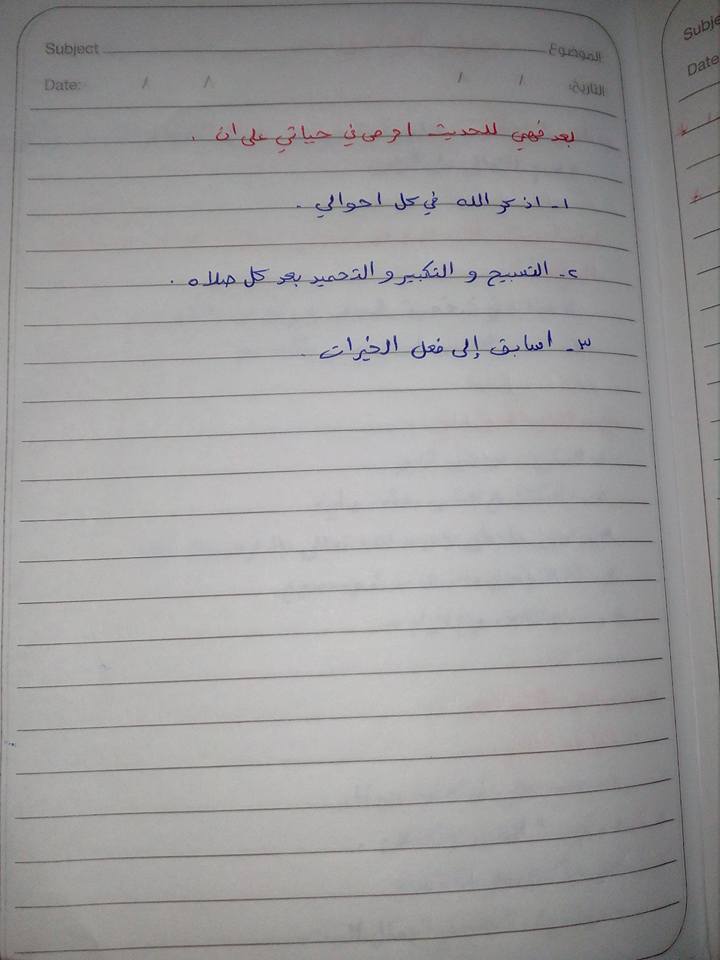 Subject الموضوع
Date: / / / / التاريخ:
Subje
Date
بعد فهمي للحديث احرص في حياتي على ان .
١- اذكر الله في كل احوالي .
٢- التسبيح و التكبير و التحميد بعد كل صلاه .
٣- اسابق إلى فعل الخيرات .